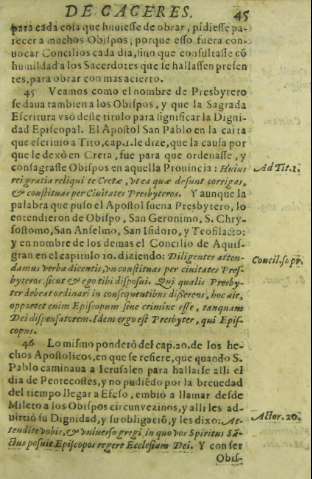 DE CACERES. 45
para cada cosa que huuiesse de obrar, pidiesse pa-
recer a muchos Obispos, porque esso fuera con-
uocar Concilios cada dia, sino que consultasse cõ
humildad a los Sacerdotes que le hallassen presen
tes, para obrar con mas acierto.
45 Veamos como el nombre de Presbytero
se daua tambien a los Obispos, y que la Sagrada
Escritura vsò deste titulo para significar la Digni-
dad Episcopal. El Apostol San Pablo en la carta
que escriuio a Tito, cap.1. le dize, que la causa por
que le dexò en Creta, fue para que ordenasse, y
consagrasse Obispos en aquella Prouincia: Huius
rei gratia reliqui te Cretæ, vt ea quæ desunt corrigas,
& constituas per Ciuitates Presbyteros. Y aunque la
palabra que puso el Apostol suena Presbytero, lo
entendieron de Obispo, San Geronimo, S. Chry-
sostomo, San Anselmo, San Isidoro, y Teofilacto;
y en nombre de los demas el Concilio de Aquis-
gran en el capitulo 10. diziendo: Diligenter atten-
damus verba dicentis, vt constituas per ciuitates Pres-
byteros sicut & ego tibi disposui. Qui qualis Presby-
ter debeat ordinari in consequentibus disserens, hoc ait,
oportet enim Episcopum sine crimine esse, tanquam
Dei dispensatorem. Idem ergo est Presbyter, qui Epis-
copus.
46 Lo mismo ponderò del cap.20. de los he-
chos Apostolicos, en que se refiere, que quando S.
Pablo caminaua a Ierusalen para hallarse alli el
dia de Pentecostes, y no pudiẽdo por la breuedad
del tiempo llegar a Efeso, embiò a llamar desde
Mileto a los Obispos circunvezinos, y alli les ad-
uirtiò su Dignidad, y su obligaciõ, y les dixo: At-
tendite vobis, & vniuerso gregi, in quo vos Spiritus Sã-
ctus posuit Episcopos regere Ecclesiam Dei. Y con ser
Obis-
Ad Tit.1.
Concil.
Actor. 20.